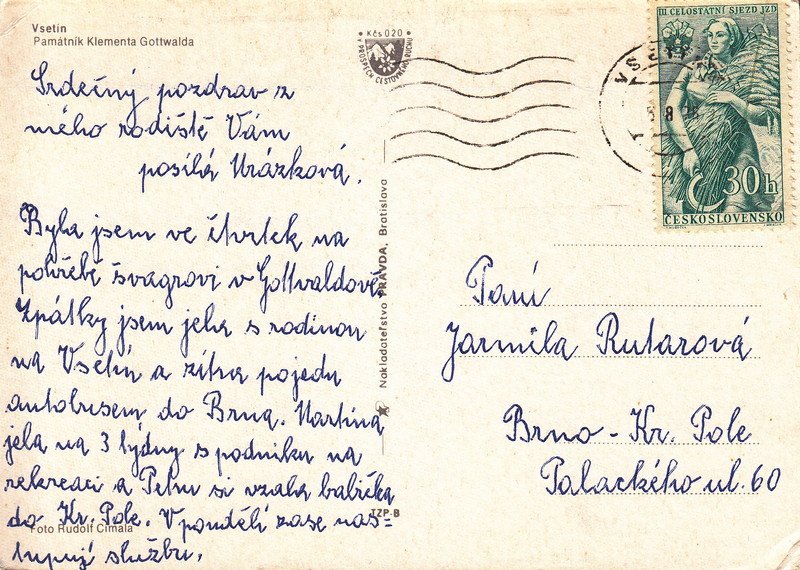 Vsetín
Památník Klementa Gottwalda
Srdečný pozdrav z
mého rodiště Vám
posílá Urázková.
Byla jsem ve čtvrtek na
pohřbě švagrovi v Gottvaldově
Zpátky jsem jela s rodinou
na Vsetín a zítra pojedu
autobusem do Brna. Martina
jela na 3 týdny s podniku na
rekreaci a Petru si vzala babička
do Kr. Pole. V pondělí zase nas-
tupuji službu.
Foto Rudolf Cimala
TZP-B
Kčs 020
V PROSPĚCH CESTOVNÉHO RUCHU
Nakladateľstvo PRAVDA, Bratislava
III. CELOSTÁTNÍ SJEZD JZD
30h
ČESKOSLOVENSKO
Paní
Jarmila Rutarová
Brno - Kr. Pole
Palackého ul. 60